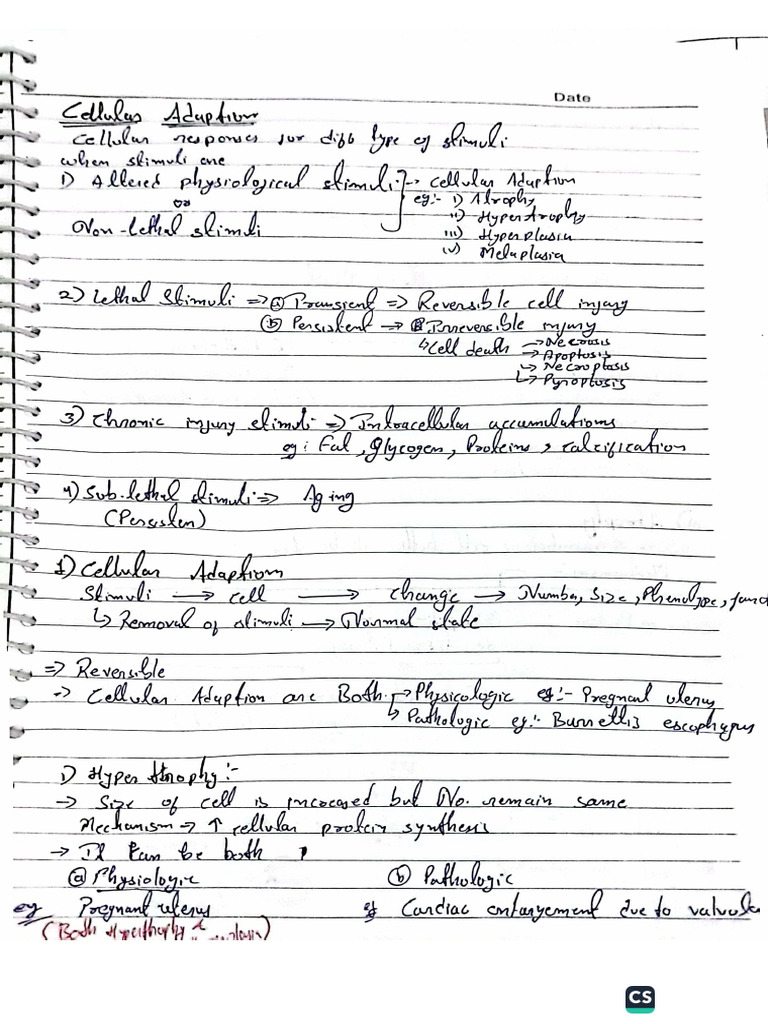 Date
Cellular Adaption
Cellular responses for diff type of stimuli
when stimuli are
1) Altered physiological stimuli → Cellular Adaption
or eg:- i) Atrophy
ii) Hypertrophy
Non-lethal stimuli iii) Hyperplasia
iv) Metaplasia
2) Lethal stimuli => ⓐ Transient => Reversible cell injury
ⓑ Persistent → Irreversible injury
↳ Cell death → Necrosis
→ Apoptosis
↳ Necroptosis
↳ Pyroptosis
3) Chronic injury stimuli => Intracellular accumulations
eg: Fat, Glycogen, Proteins, calcification
4) Sub-lethal stimuli => Aging
(Persisten)
1) Cellular Adaption
Stimuli → cell → change → Number, Size, Phenotype, funct
↳ Removal of stimuli → Normal state
=> Reversible
-> Cellular Adaption are Both → Physicologic eg:- Pregnant uterus
↳ Pathologic eg:- Burrettis escophyrus
i) Hypertrophy:-
→ Size of cell is increased but No. remain same
Mechanism → ↑ cellular protein synthesis
→ It can be both
ⓐ Physiologic ⓑ Pathologic
eg Pregnant uterus eg Cardiac entargement due to valvula
(Both Hyperthophy &
CS